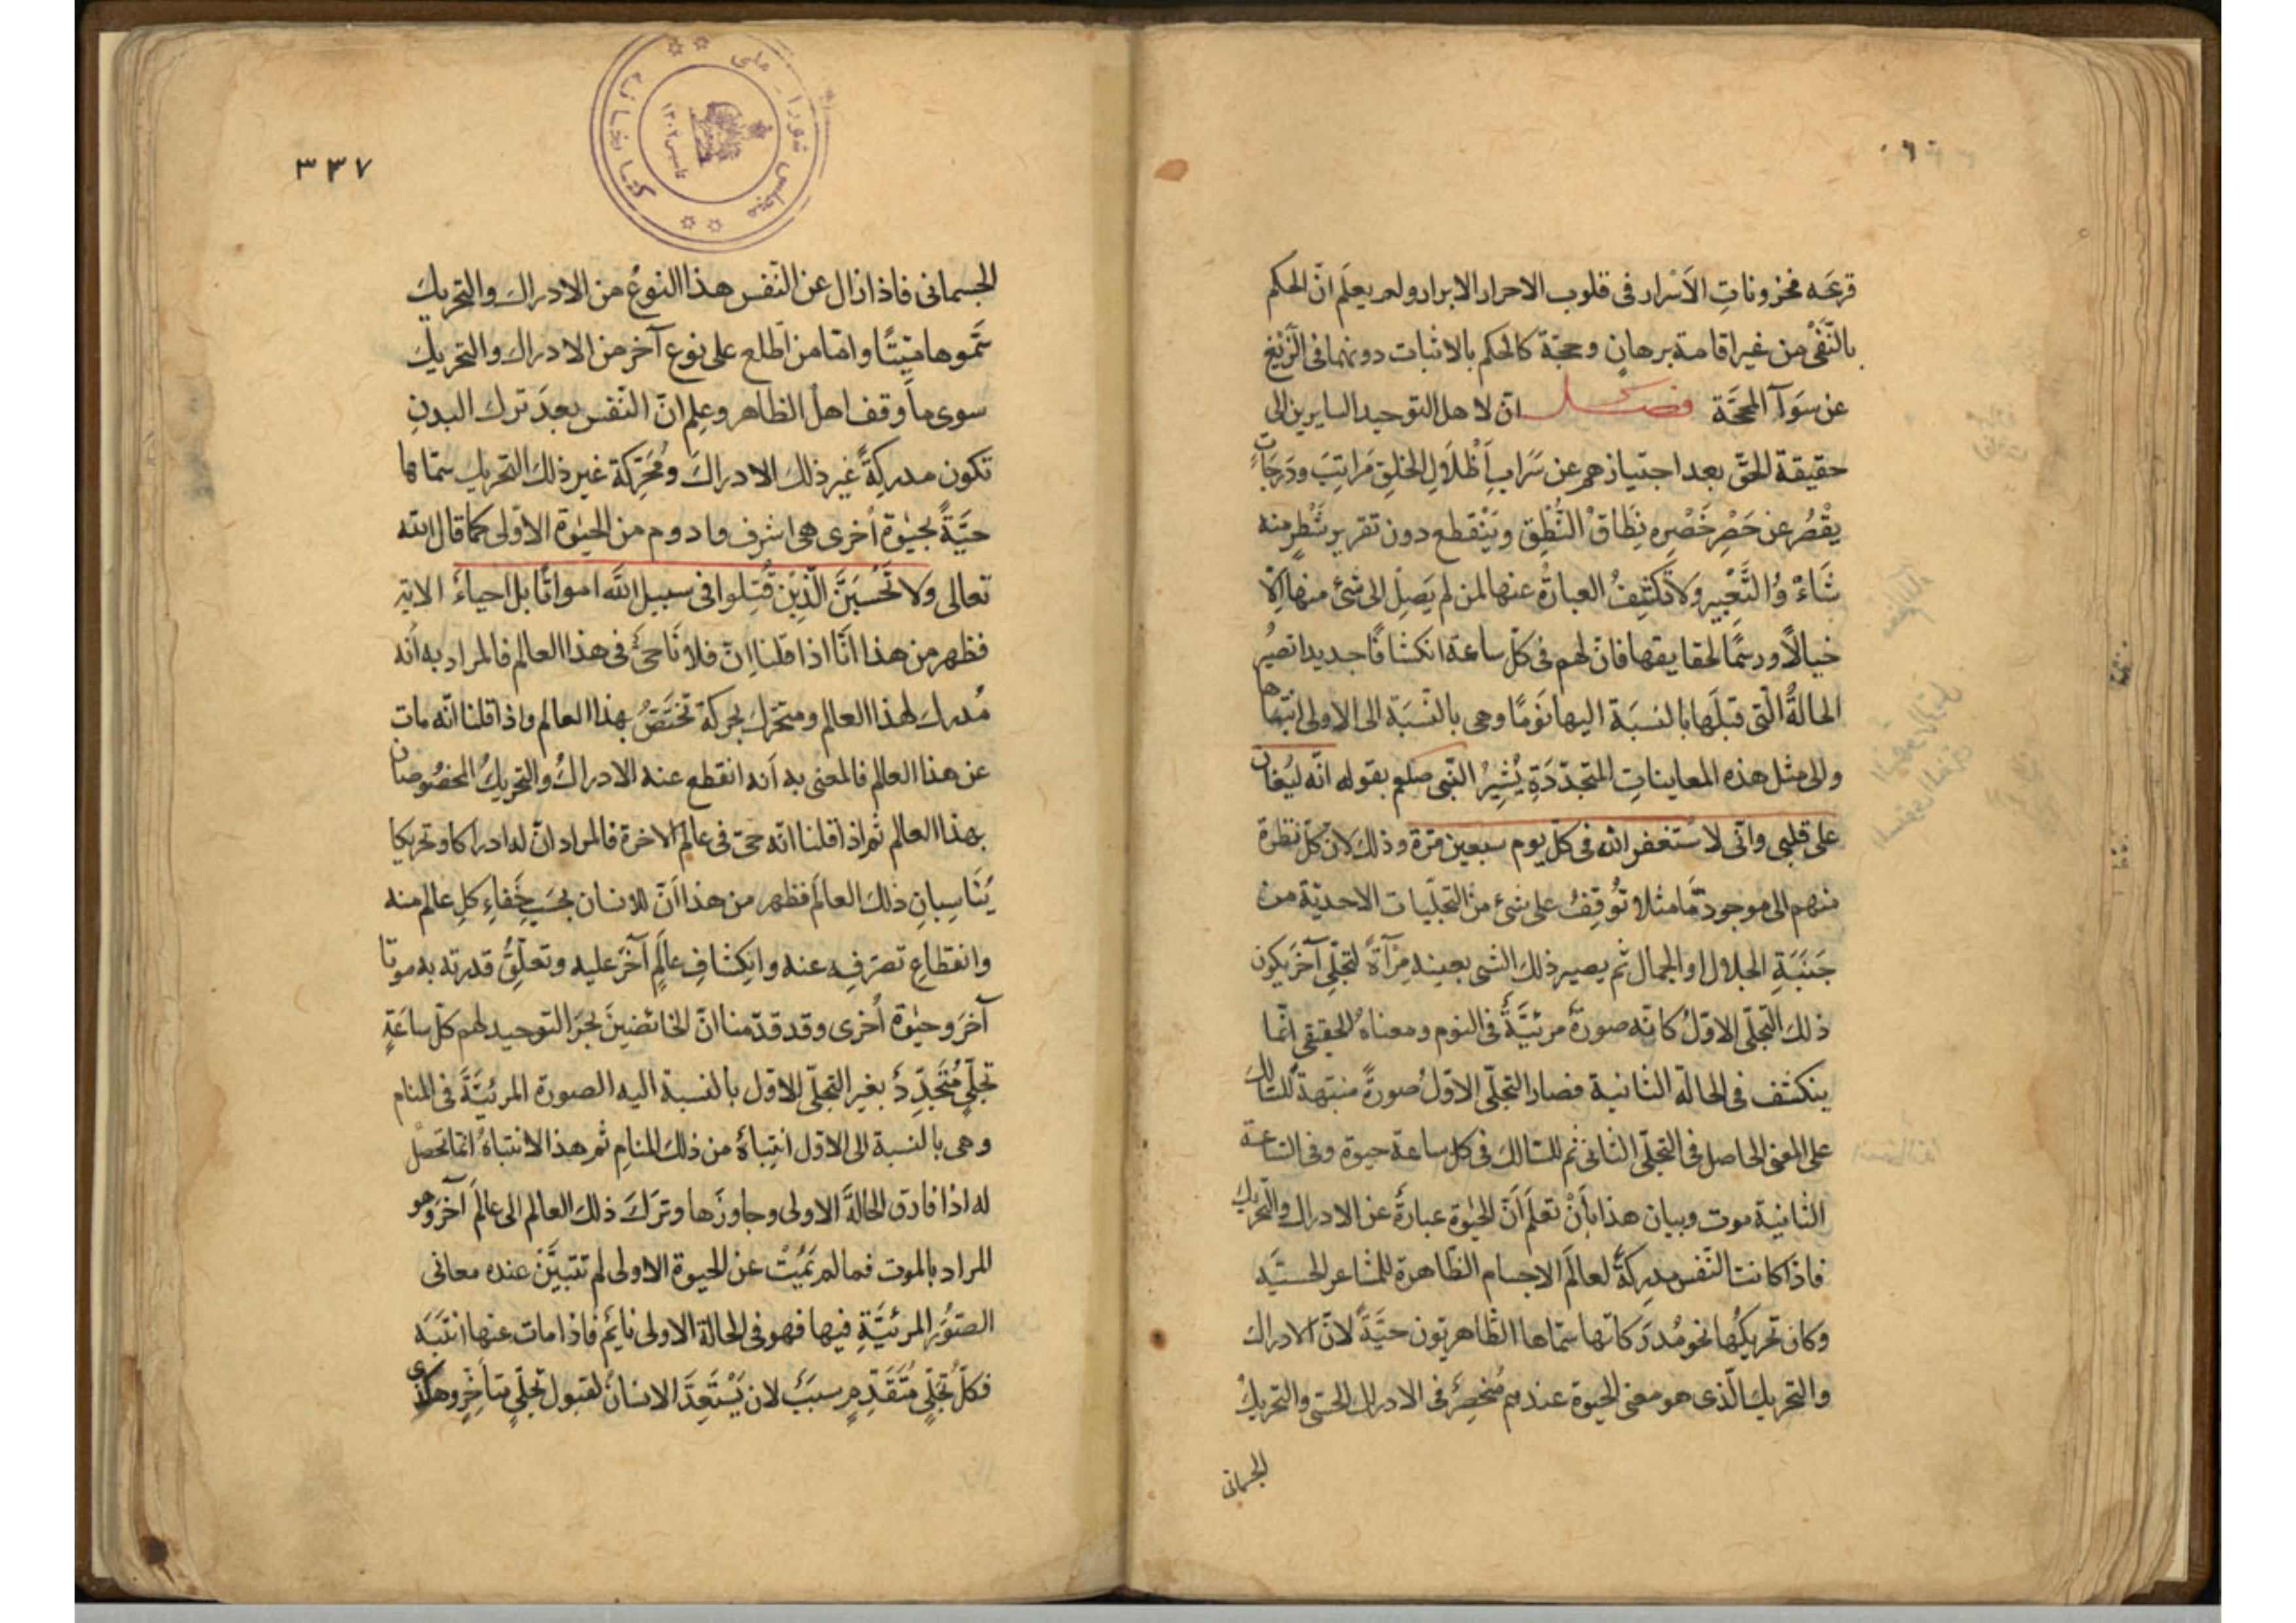 قرعَه مخزوناتِ الاَسْرار فى قلوب الاحرار الابرار ولم يعلَم انّ الحكم
بالنَّفْى من غير اقامة برهانٍ وحجّة كالحكم بالاثبات دونهما فى الزّيغ
عن سَوَآءِ المحجَّة فصل انّ لاهل التوحيد السايرين الى
حقيقة الحقّ بعد اجتيازهم عن سَرَابِ أَظْلَالِ الخلقِ مَراتِبَ ودَرجَاتٍ
يقْصُر عن حَصْرِ خَصْرِه نِطَاقُ النُّطْقِ ويَنْقطع دون تقرير شَطْرٍ منه
ثَنَاءُ التَّعْبير ولا تكشِفُ العبارةُ عنها لمن لم يَصِلْ الى شئ منها الّا
خيالًا ورسمًا لحقايقها فانّ لهم فى كلّ ساعة انكشافًا جديدا تصيرُ
الحالةُ الّتى قبلَها بالنسبَة اليها نَومًا وهى بالنّسبَة الى الاولى انتباها
والى مثل هذه المعايناتِ المتجدّدَةِ يُشِيرُ النّبى صلعم بقوله انّه ليُغان
على قلبى وانّى لاستغفر الله فى كلّ يوم سبعين مرّة وذلك لانّ كلّ نظرة
منهم الى موجود مّا مثلا تُوقِفُ على شئ من التجلّيات الاحديّة من
جَنَبَةِ الجلال او الجمال ثم يصير ذلك الشى بعينه مِرْآةً لتجلّى آخر يكون
ذلك التجلّى الاوّل كانّه صورةٌ مرئيَّةٌ فى النوم ومعناهُ الحقيقى انّما
ينكشف فى الحالة الثانية فصار التجلّى الاوّلُ صورةً منبّهةً للسّالك
على المعنى الحاصل فى التجلّى الثانى ثم للسّالك فى كل ساعة حيوة وفى السّاعة
الثانية موت وبيان هذا بأنْ تعلَم أنّ الحيٰوة عبارةٌ عن الادراك والتّحريك
فاذا كانت النّفس مدرِكةً لعالَم الاجسام الظّاهرة للمشاعر الحسيَّه
وكان تحريكُها نحو مُدرَكاتها سمّاها الظّاهريّون حيَّةً لانّ الادراك
والتحريك الّذى هو معنى الحيوة عندهم مُنحصِرٌ فى الادراك الحسّى والتحريكِ
الجسمانى
٣٣٧
كتابخانه مجلس شورا - ملى
تاسيس ١٣٠٢
الجسمانى فاذا زال عن النّفس هذا النوعُ من الادراك والتحريك
سَمَّوها ميّتًا وامّا من اطّلع على نوع آخر من الادراك والتحريك
سوى ما وقف اهل الظاهر وعلِم انّ النّفس بعدَ ترك البدنِ
تكون مدركةً غير ذلك الادراك ومُحَرِّكة غير ذلك التحريك سمّاها
حيَّةً بحيٰوة اُخرى هى اشرف وادوم من الحيٰوة الاولى كما قال الله
تعالى ولا تَحْسَبَنَّ الَّذِيْنَ قُتِلوا فى سبيل الله امواتًا بل احياءٌ الاية
فظهر من هذا انّا اذا قلنا انّ فلانًا حىٌّ فى هذا العالم فالمراد به أنه
مُدرك لهذا العالم ومتحرّك بحركة تختصُّ بهذا العالم واذا قلنا انّه مات
عن هذا العالم فالمعنى به أنه انقطع عنه الادراكُ والتحريكُ المخصُوصان
بهذا العالم ثم اذا قلنا انّه حىّ فى عالم الاخرة فالمراد انّ له ادراكا وتحريكا
يُنَاسِبانِ ذلك العالَم فظهر من هذا أنّ للانسان بحسَبِ خَفاءِ كلِ عالم منه
وانقطاعِ تصرّفِه عنه وانكِشافِ عالَمٍ آخرَ عليه وتعلّقُ قدرته به موتا
آخرَ وحيٰوة اُخرى وقد قدّمنا انّ للخائضينَ بحرَ التوحيد لهم كلّ ساعَةٍ
تجلّىٍ مُتَجَدِّدٌ بغير التجلّى الاوّل بالنسبة اليه الصورة المرئيَّةُ فى المنام
وهى بالنسبة الى الاوّل انتِباهٌ من ذلك المنامِ ثم هذا الانتباهُ انّما تحصل
له اذا فارق الحالةَ الاولى وجاوزَها وترَكَ ذلك العالم الى عالَم آخرَ وهو
المراد بالموت فما لم تَمُتْ عن الحيوة الاولى لم تتبيَّنْ عنده معانى
الصّوَرِ المرئيَّةِ فيها فهو فى الحالة الاولى نايمٌ فاذا مات عنها انتبَهَ
فكلّ تجلّىٍ مُتَقَدِّمٍ سببٌ لان يَسْتَعِدَّ الانسانُ لقبول تجلّىٍ متأخّرٍ وهكذى